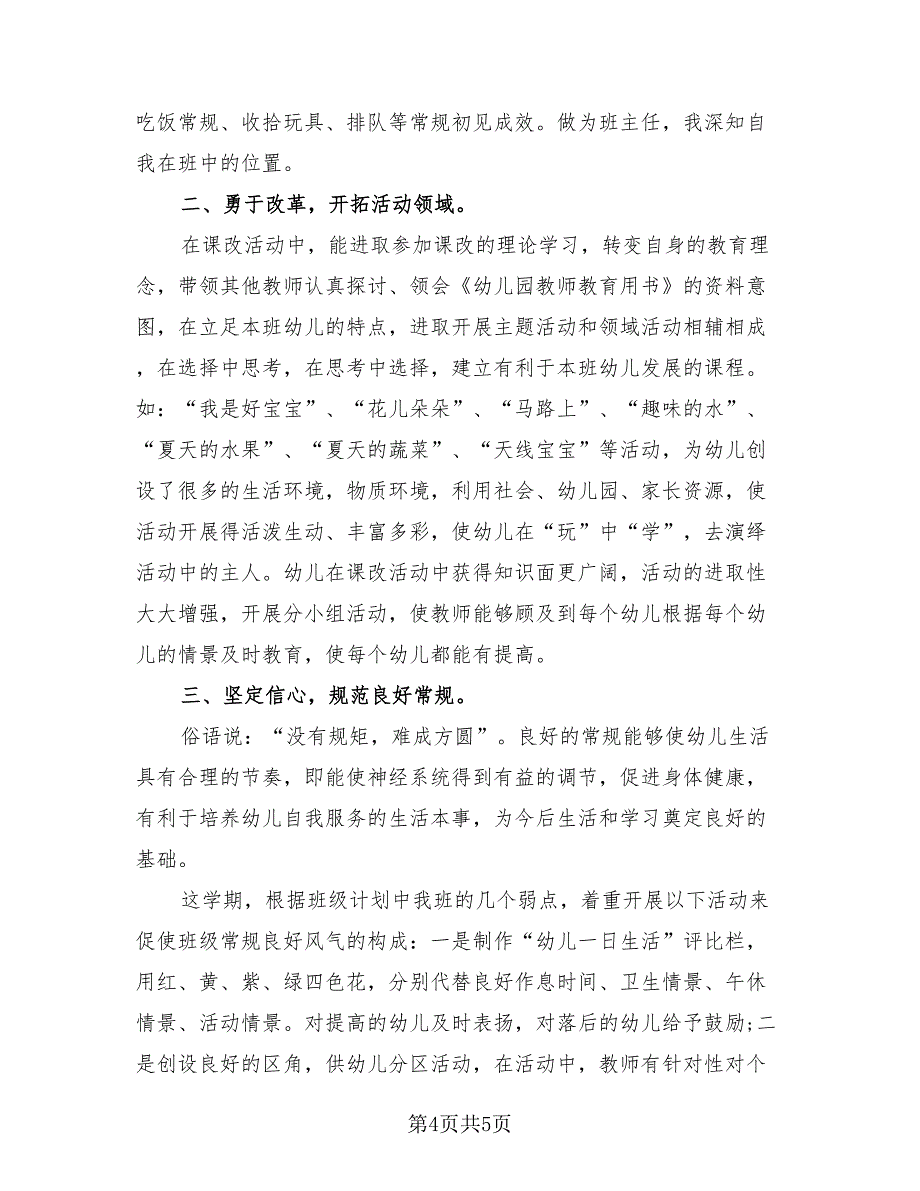 吃饭常规、收拾玩具、排队等常规初见成效。做为班主任，我深知自
我在班中的位置。
二、勇于改革，开拓活动领域。
在课改活动中，能进取参加课改的理论学习，转变自身的教育理
念，带领其他教师认真探讨、领会《幼儿园教师教育用书》的资料意
图，在立足本班幼儿的特点，进取开展主题活动和领域活动相辅相成
，在选择中思考，在思考中选择，建立有利于本班幼儿发展的课程。
如：“我是好宝宝”、“花儿朵朵”、“马路上”、“趣味的水”、
“夏天的水果”、“夏天的蔬菜”、“天线宝宝”等活动，为幼儿创
设了很多的生活环境，物质环境，利用社会、幼儿园、家长资源，使
活动开展得活泼生动、丰富多彩，使幼儿在“玩”中“学”，去演绎
活动中的主人。幼儿在课改活动中获得知识面更广阔，活动的进取性
大大增强，开展分小组活动，使教师能够顾及到每个幼儿根据每个幼
儿的情景及时教育，使每个幼儿都能有提高。
三、坚定信心，规范良好常规。
俗语说：“没有规矩，难成方圆”。良好的常规能够使幼儿生活
具有合理的节奏，即能使神经系统得到有益的调节，促进身体健康，
有利于培养幼儿自我服务的生活本事，为今后生活和学习奠定良好的
基础。
这学期，根据班级计划中我班的几个弱点，着重开展以下活动来
促使班级常规良好风气的构成：一是制作“幼儿一日生活”评比栏，
用红、黄、紫、绿四色花，分别代替良好作息时间、卫生情景、午休
情景、活动情景。对提高的幼儿及时表扬，对落后的幼儿给予鼓励;二
是创设良好的区角，供幼儿分区活动，在活动中，教师有针对性对个
第4页共5页